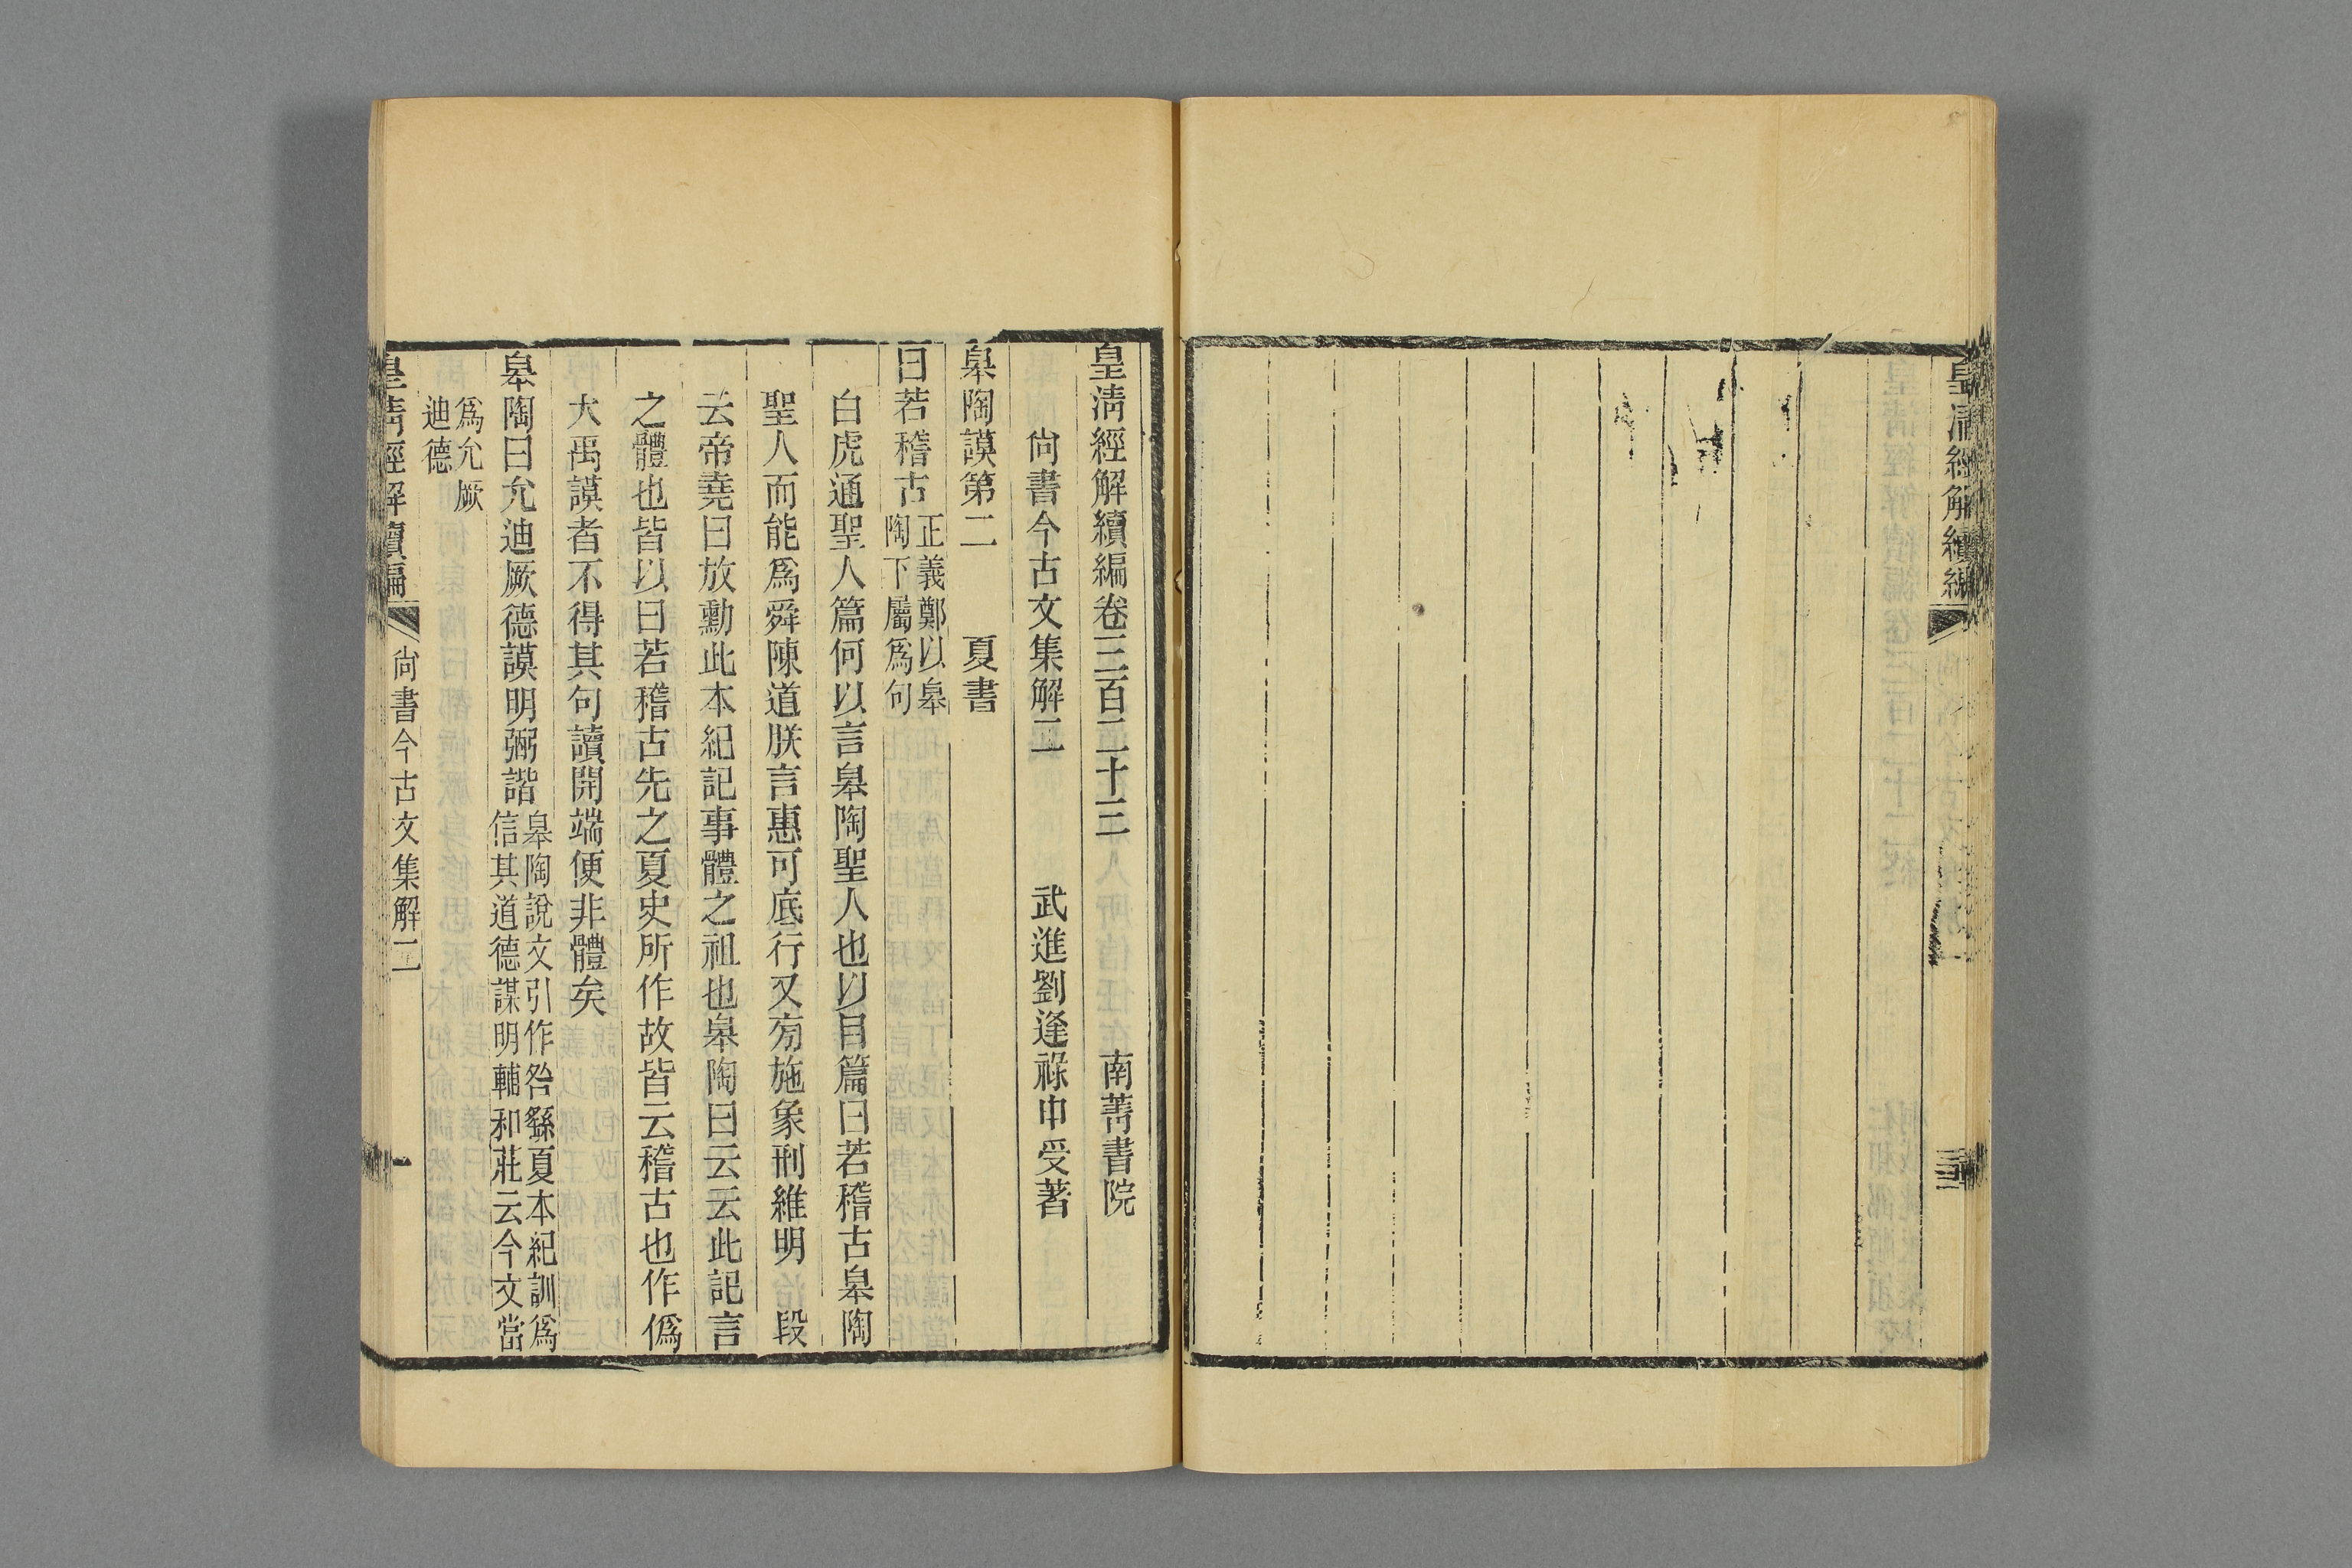 皇清經解續編
皇清經解續編卷三百二十三
南菁書院
尙書今古文集解二
武進劉逢祿申受著
皋陶謨第二
夏書
曰若稽古
正義鄭以皋
陶下屬爲句
白虎通聖人篇何以言皋陶聖人也以目篇曰若稽古皋陶
聖人而能爲舜陳道朕言惠可底行又旁施象刑維明
段
云帝堯曰放勳此本紀記事體之祖也皋陶曰云云此記言
之體也皆以曰若稽古先之夏史所作故皆云稽古也作僞
大禹謨者不得其句讀開端便非體矣
皋陶曰允迪厥德謨明弼諧
皋陶說文引作咎繇夏本紀訓爲
信其道德謀明輔和莊云今文當
爲允厥
迪德
皇清經解續編
尙書今古文集解二
一